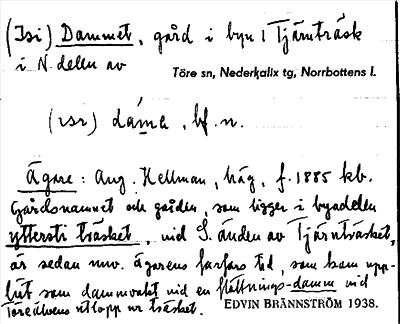 (Isi) Dammet, gård i byn 1 Tjärnträsk
i N. delen av
Töre sn, Nederkalix tg, Norrbottens l.
(isi) , bf. n.
Ägare: Aug. Hellman, häg, f. 1885 kb.
Gårdsnamnet och gården, som ligger i byadelen
yttersti träsket, vid S. änden av Tjärnträsket,
är sedan nuv. ägarens farfars tid, som kom upp-
hit som dammvakt vid en flottnings-damm vid
Töreälvens utlopp ur träsket. EDVIN BRÄNNSTRÖM 1938.